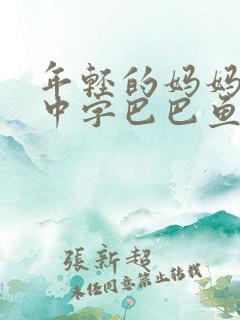 年轻的妈妈
中字巴巴鱼
張新超
未经同意禁止转载